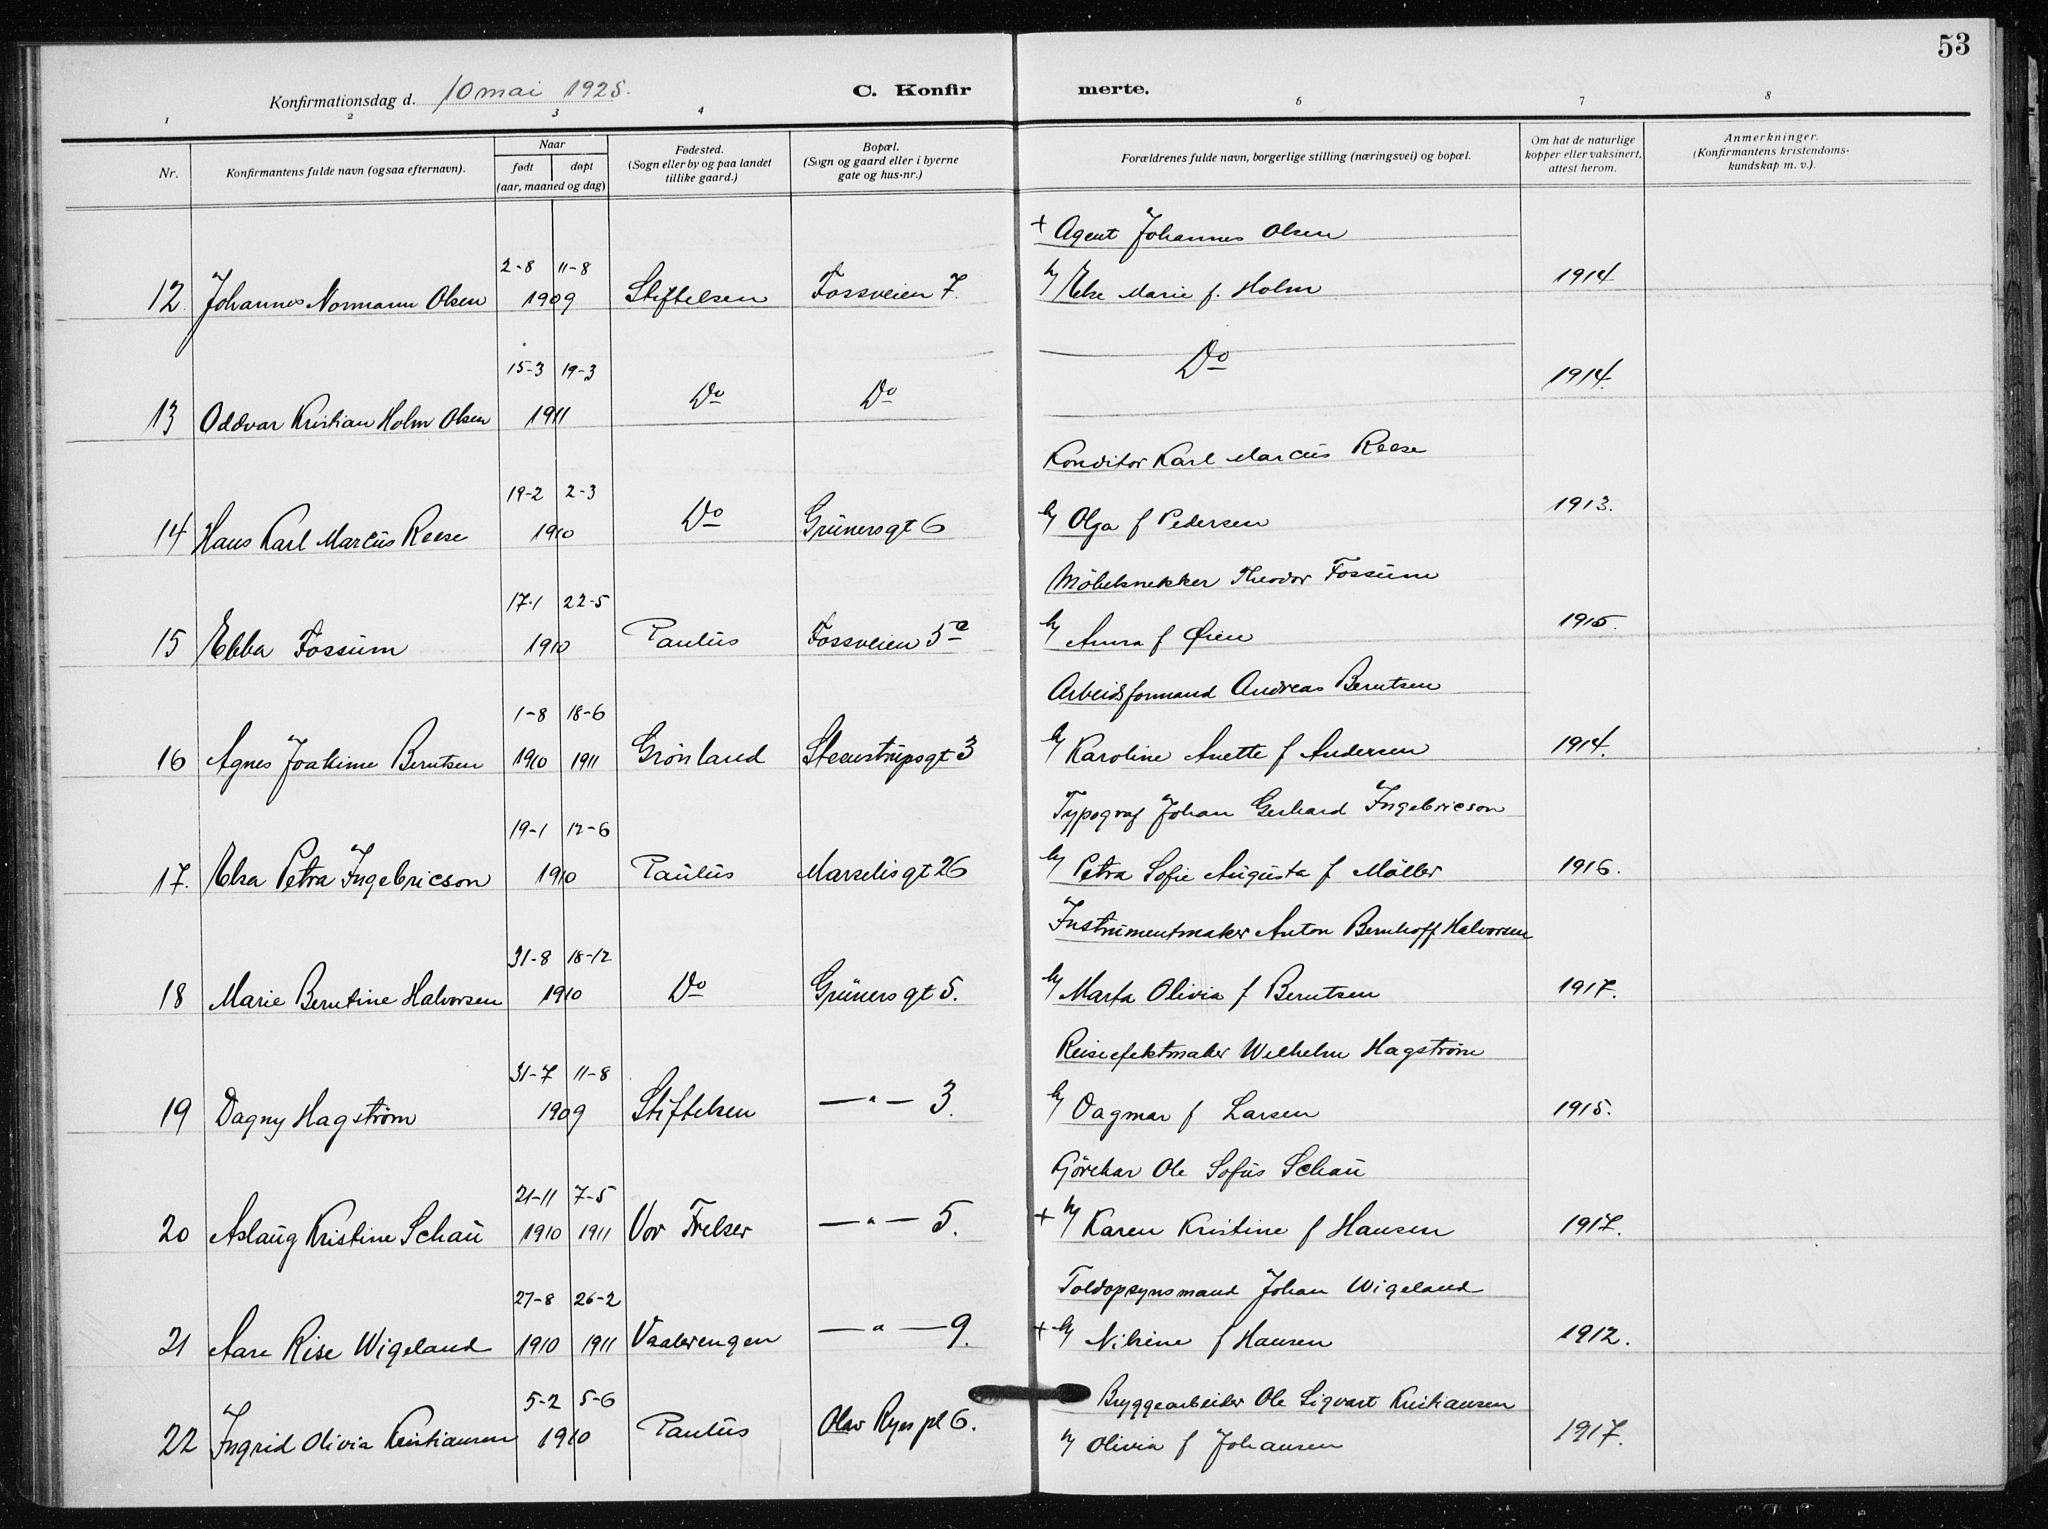 53
Konfirmationsdag d. 10 mai 1925. C. Konfir merte.
1 2 3 4 6 7 8
Nr. Konfirmantens fulde navn (ogsaa efternavn). Naar født døpt (aar, maaned og dag) Fødested. (Sogn eller by og paa landet tillike gaard.) Bopæl. (Sogn og gaard eller i byerne gate og hus-nr.) Forældrenes fulde navn, borgerlige stilling (næringsvei) og bopæl. Om hat de naturlige kopper eller vaksinert, attest herom. Anmerkninger. (Konfirmantens kristendoms- kundskap m. v.).
+ Agent Johannes Olsen
2-8 11-8
12. Johannes Normann Olsen 1909 Stiftelsen Fossveien 7. h/ Else Marie f. Holm 1914
15-3 19-3 Do
13 Oddvar Kristian Holm Olsen 1911 Do Do 1914.
Konditor Karl Marcus Reese
19-2 2-3
14 Hans Karl Marcus Reese 1910 Do Grünersgt 6 h/ Olga f Pedersen 1913.
Möbelsnekker Theodor Fossum
17-1 22-5
15 Ebba Fossum 1910 Paulus Fossveien 5 h/ Anna f Øien 1915.
Arbeidsformand Andreas Berntsen
1-8 18-6
16 Agnes Joakime Berntsen 1910 1911 Grönland Steenstrupsgt 3 h/ Karoline Anette f Andersen 1914.
Typograf Johan Gerhard Ingebricson
19-1 12-6
17. Elsa Petra Ingebricson 1910 Paulus Marselisgt 26 h/ Petra Sofie Augusta f Möller 1916.
Instrumentmaker Anton Bernhoff Halvorsen
31-8 18-12
18 Marie Berntine Halvorsen 1910 Do Grünersgt 5. h/ Marta Olivia f Berntsen 1917.
Reiseefektmaker Wilhelm Hagstrøm
31-7 11-8
19 Dagny Hagstrøm 1909 Stiftelsen — " — 3. h/ Dagmar f Larsen 1915.
Gjörtlar Ole Sofus Schau
21-11 7-5
20 Aslaug Kristine Schau 1910 1911 Vor Frelser — " — 5. + h/ Karen Kristine f Hansen 1917.
Toldopsynsmand Johan Wigeland
27-8 26-2
21 Aase Rise Wigeland 1910 1911 Vaalerengen — " — 9. + h/ Nikine f Hansen 1912.
5-2 5-6 Bryggearbeider Ole Sigvart Kristiansen
22 Ingrid Olivia Kristiansen 1910 Paulus Olav Ryes pl 6. h/ Olivia f Johansen 1917.